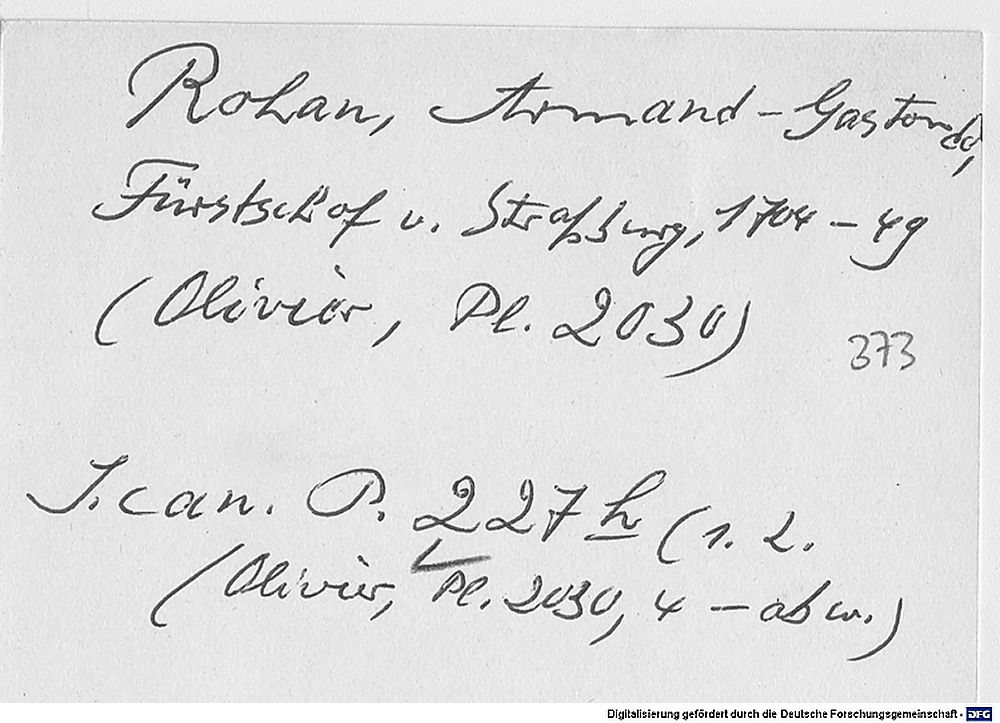 Rohan, Armand-Gaston de,
Fürstbischof v. Straßburg, 1704-49
(Olivier, Pl. 2030)
373
J.can. P. 227 h (1. 2.
(Olivier, Pl. 2030, 4 - abw.)
Digitalisierung gefördert durch die Deutsche Forschungsgemeinschaft - DFG